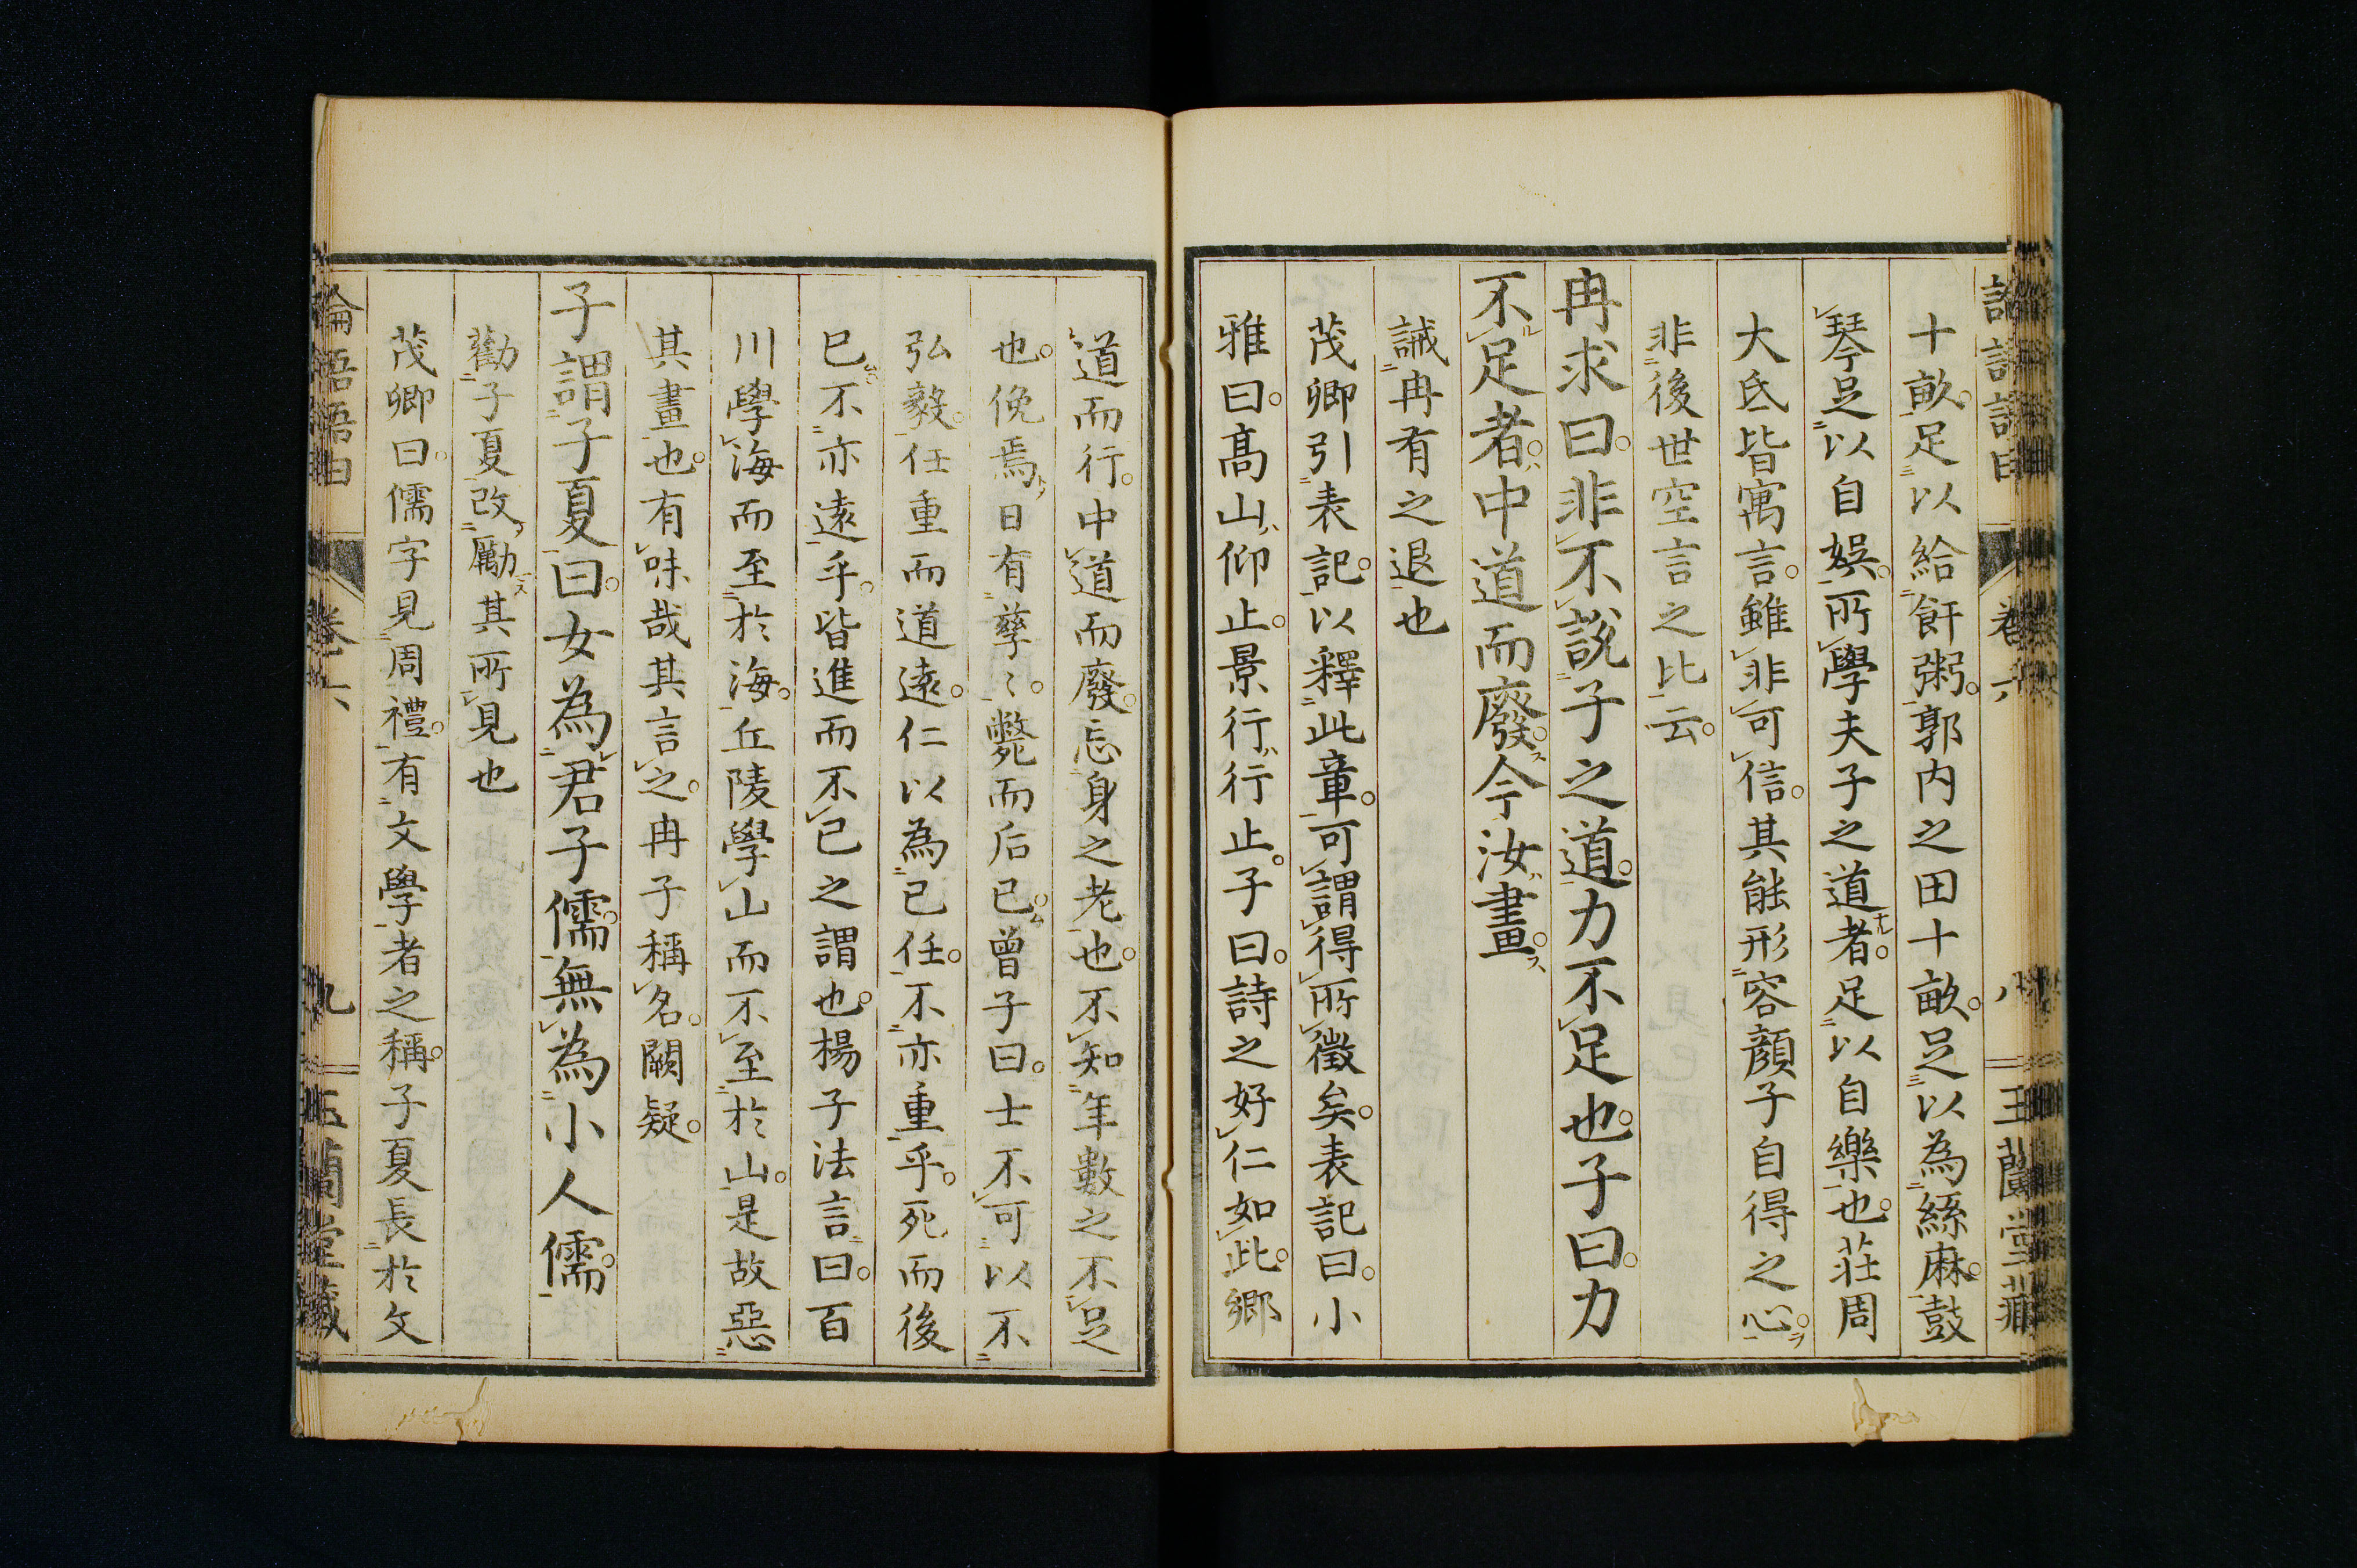 十畝。足以給飦粥。郭内之田十畝。足以為絲麻。鼓
琴足以自娯。所學夫子之道者。足以自樂也。荘周
大氐皆寓言。雖非可信。其能形容顔子自得之心。
非後世空言之比云。
冉求曰。非不説子之道。力不足也。子曰。力
不足者。中道而廢。今汝畫。
誡冉有之退也
茂卿引表記。以釋此章。可謂得所徵矣。表記曰。小
雅曰。高山仰止。景行行止。子曰。詩之好仁如此。郷
道而行。中道而廢。忘身之老也。不知年數之不足
也。俛焉日有孳〻。斃而后已。曾子曰。士不可以不
弘毅。任重而道遠。仁以為已任。不亦重乎。死而後
已。不亦遠乎。皆進而不已之謂也。楊子法言曰。百
川學海而至於海。丘陵學山而不至於山。是故惡
其畫也。有味哉其言之。冉子稱名。闕疑。
子謂子夏曰。女為君子儒。無為小人儒。
勸子夏改勵其所見也
茂卿曰。儒字見周禮。有文學者之稱。子夏長於文
論語語由 卷六 九 玉蘭堂藏